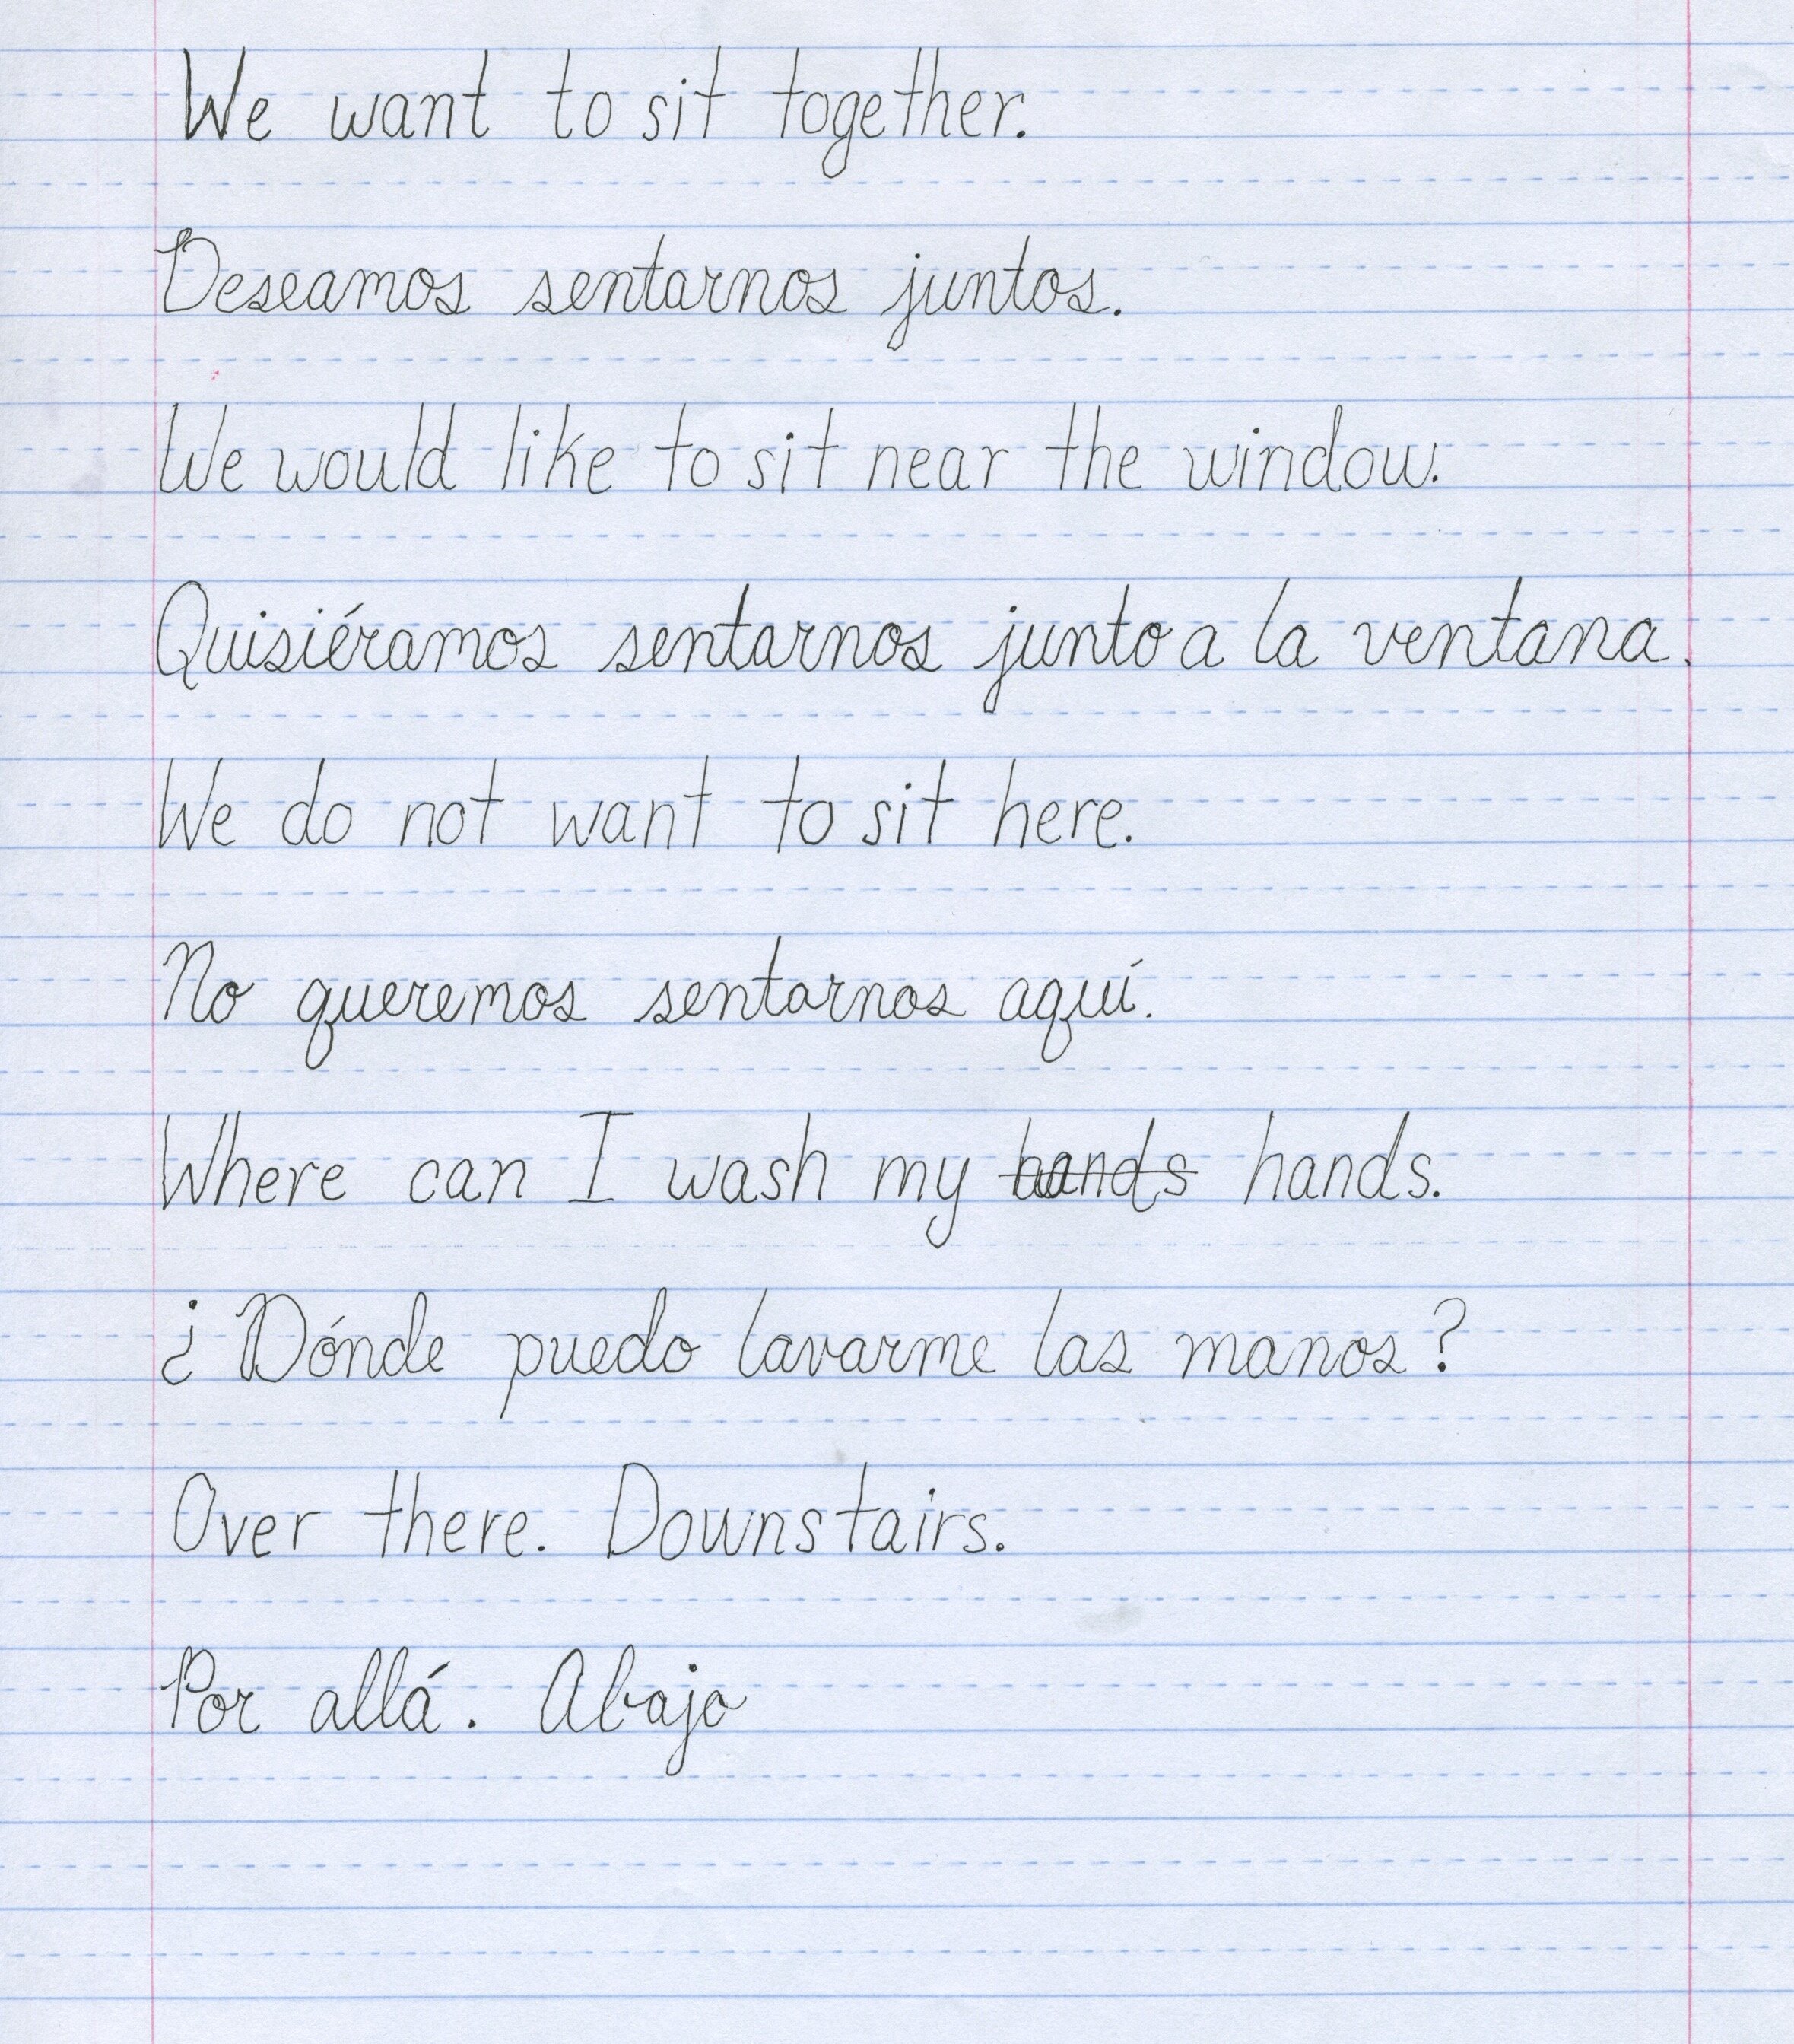 We want to sit together.
Deseamos sentarnos juntos.
We would like to sit near the window.
Quisiéramos sentarnos junto a la ventana.
We do not want to sit here.
No queremos sentarnos aquí.
Where can I wash my hands hands.
¿Dónde puedo lavarme las manos?
Over there. Downstairs.
Por allá. Abajo